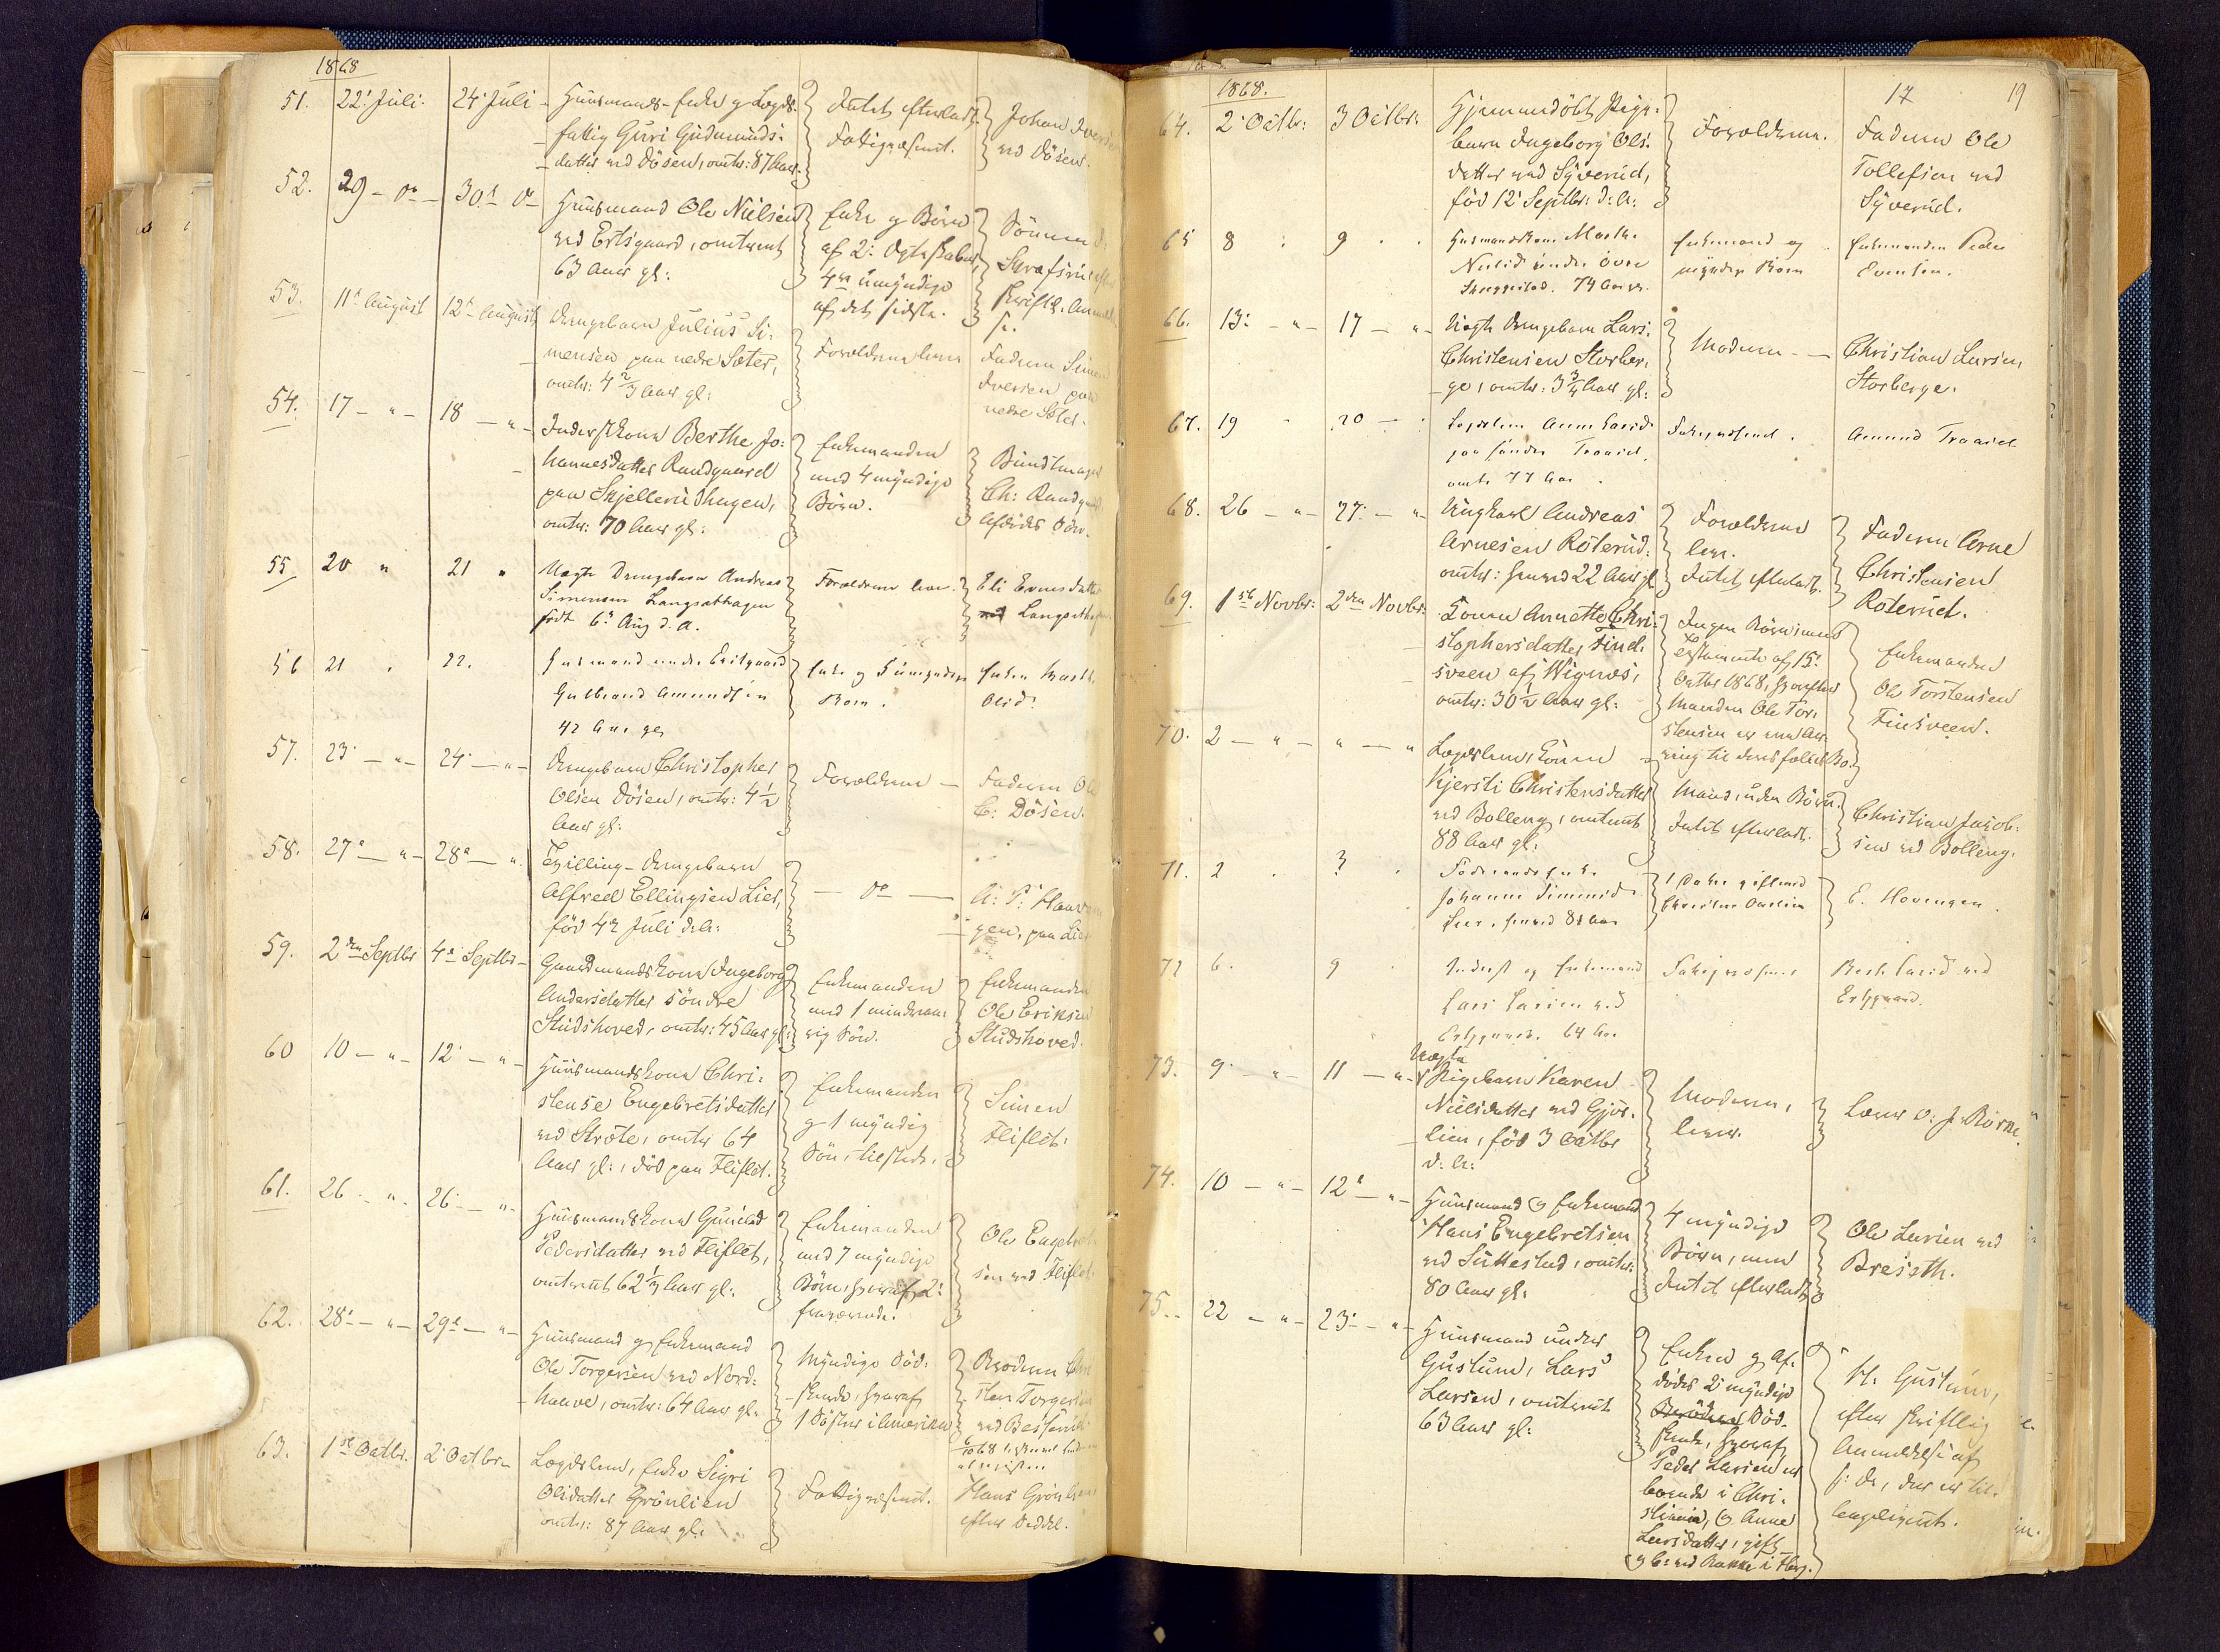 1868
51. 22' Juli. 24' Juli
Huusmands-Enke og Lægds-
fattig Guri Gudmunds-
datter ved Dösen, omtr: 87 Aar.
Intet efterladt.
Fattigvæsenet.
Johan Iversen
ved Dösen.
52. 29 - do - 30t do
Huusmand Ole Nielsen
ved Ertsgaard, omtrent
63 Aar gl:
Enke og Börn
af 2: Ægteskaber,
4re umyndige
af det sidste.
Sönnen
53. 11t August 12t August
Drengebarn Julius Si-
mensen paa nedre Sæter,
omtr: 4 2/3 Aar gl:
Forældrene leve
Faderen Simen
Iversen paa
nedre Sæter.
54. 17 - " - 18 - " -
Inderstkone Berthe Jo-
hannesdatter Randgaard
paa Skjellerudhagen,
omtr: 70 Aar gl:
Enkemanden
med 4 myndige
Börn.
Bundtmager
Ch: Randgaard
Afdödes Sön.
55 20 " 21 "
Uægte Drengebarn Andreas
Simensen Langsæthagen
födt 6' Aug d. A.
Forældrene leve.
Eli Evensdatter
Langsæthagen
56 21 . 22.
Husmand under Ertsgaard
Gulbrand Amundsen
42 Aar gl
Enke og 5 umyndige
Börn.
Enken Marthe
Olsd:
57. 23' - " - 24' - " -
Drengebarn Christopher
Olsen Dösen, omtr: 4 1/2
Aar gl:
Forældrene
Faderen Ole
C: Dösen.
58. 27' - " - 28' - " -
Tvilling-Drengebarn
Alfred Ellingsen Lier,
föd 4' Juli d: A:
- do -
A: P: Haave
gen, paa Lier
59. 2den Septbr 4' Septbr
Gaardmandskone Ingeborg
Andersdatter söndre
Studshoved, omtr: 45 Aar gl:
Enkemanden
med 1 mindreaa-
rig Sön.
Enkemanden
Ole Eriksen
Studshoved.
60 10 - " - 12' - " -
Huusmandskone Chri-
stense Engebretsdatter
ved Stræte, omtr 64
Aar gl:, död paa Fliflet.
Enkemanden
og 1 myndig
Sön, tilstede.
Simen
Fliflet.
61. 26 - " - 26' - " -
Huusmandskone Gunild
Pedersdatter ved Fliflet,
omtrent 62 1/3 Aar gl:
Enkemanden
med 7 myndige
Börn, hvoraf 2:
fraværende.
Ole Engebret-
sen ved Fliflet.
62. 28' - " - 29' - " -
Huusmand og Enkemand
Ole Torgersen ved Nord-
haave, omtr: 64 Aar gl:
Myndige Söd-
skende, hvoraf
1 Söster i Amerika
Broderen Chri-
sten Torgersen
ved Besserud
63. 1ste Octbr. 2 Octbr
Lægdslem, Enke Sigri
Olsdatter Grönlien
omtr: 87 Aar gl:
Fattigvæsenet.
Hans Grönlien
efter Seddel.
1868. 17 19
64. 2' Octbr: 3 Octbr:
Hjemmedöbt Pige-
barn Ingeborg Ols-
datter ved Syverud,
föd 12' Septbr: d: A:
Forældrene.
Faderen Ole
Tollefsen ved
Syverud.
65 8 . 9 .
Husmandskone Marthe
Nielsd: under övre
74 Aar gl.
Enkemand og
myndige Börn
Enkemanden Peder
Evensen.
66. 13' - " - 17 - " -
Uægte Drengebarn Lars
Christensen Storber-
ge, omtr: 3 3/4 Aar gl:
Moderen
Christian Larsen
Storberge.
67. 19 20
Lægdslem Anne Larsd:
paa söndre Traaset
omtr 77 Aar.
Fattigvæsenet.
Amund Traaset
68. 26 - " - 27' - " -
Ungkarl Andreas
Arnesen Röterud,
omtr: henved 22 Aar gl
Forældrene
leve.
Intet efterladt.
Faderen Arne
Christensen
Röterud.
69. 1ste Novbr: 2den Novbr:
Konen Annette Chri-
stophersdatter Find-
sveen af Wignæs,
omtr: 30 1/2 Aar gl:
Ingen Börn, men
Testamente af 15'
Octbr 1868, hvorefter
Manden Ole Tor-
stensen er eneAr-
ving til deres fælles Bo.
Enkemanden
Ole Torstensen
Finsveen.
70. 2 - " - " - "
Lægdslem, Konen
Kjersti Christensdatter
ved Bolleng, omtrent
88 Aar gl:
Mand, uden Börn.
Intet efterladt.
Christian Jacob-
sen ved Bolleng.
71. 2 . 3 .
Föderaadsenke
Johanne Simensd:
Lier, henved 81 Aar
1 Datter gift med
E. Hovengen.
72 6. 9
Inderst og Enkemand
Lars Larsen ved
Ertsgaard. 64 Aar
Fattigvæsenet
ved
Ertsgaard.
73. 9' - " - 11 - " -
Uægte
Pigebarn Karen
Nielsdatter ved Gjös-
lien, föd 3 Octbr
d: A:
Moderen,
lever.
Lærer O: J. Börke.
74. 10 - " - 12' - " -
Huusmand og Enkemand
Hans Engebretsen
ved Suttestad, omtr:
80 Aar gl:
4 myndige
Börn, men
Intet efterladt
Ole Larsen ved
Breisth.
75. 22 - " - 23' - " -
Huusmand under
Gustum, Lars
Larsen, omtrent
63 Aar gl:
Enken og Af-
dödes 2' myndige
Brödre Söd-
skende, hvoraf
Peder Larsen er
boende i Chri-
stiania, og Anne
Larsdatter, gift
og b: ved Bakke i Herg.
H: Gustum,
efter skriftlig
Anmeldelse af
s: D:, der er til-
lagt